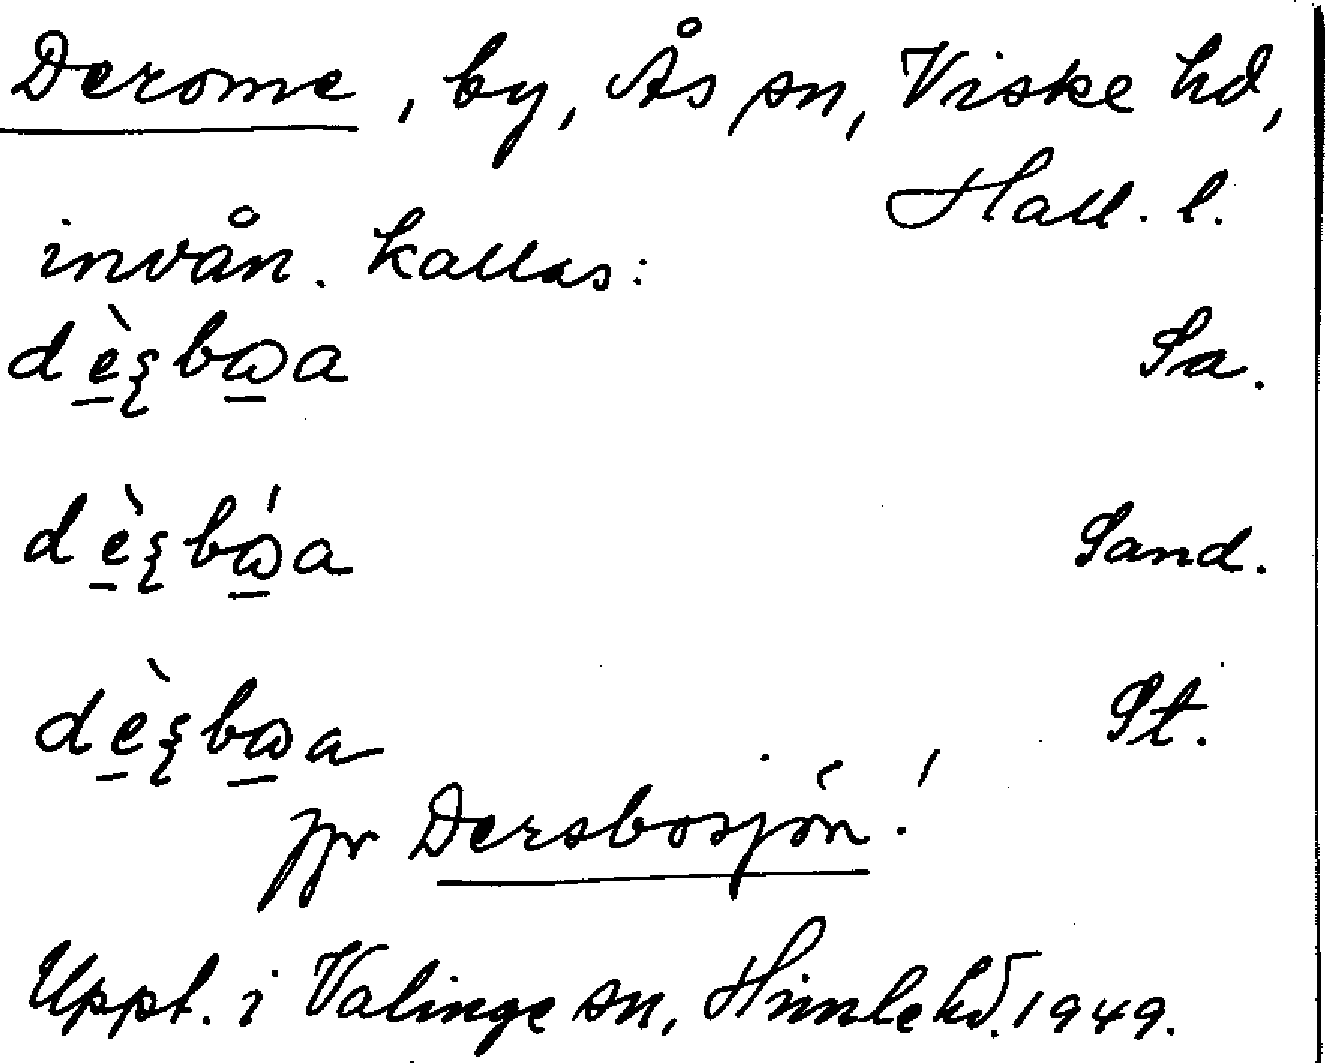 Derome, by, Ås sn, Viske hd,
Hall. l.
invån. kallas:
Sa.
Sand.
St.
jfr Dersbosjön!
Uppt. i Valinge sn, Himle hd. 1949.